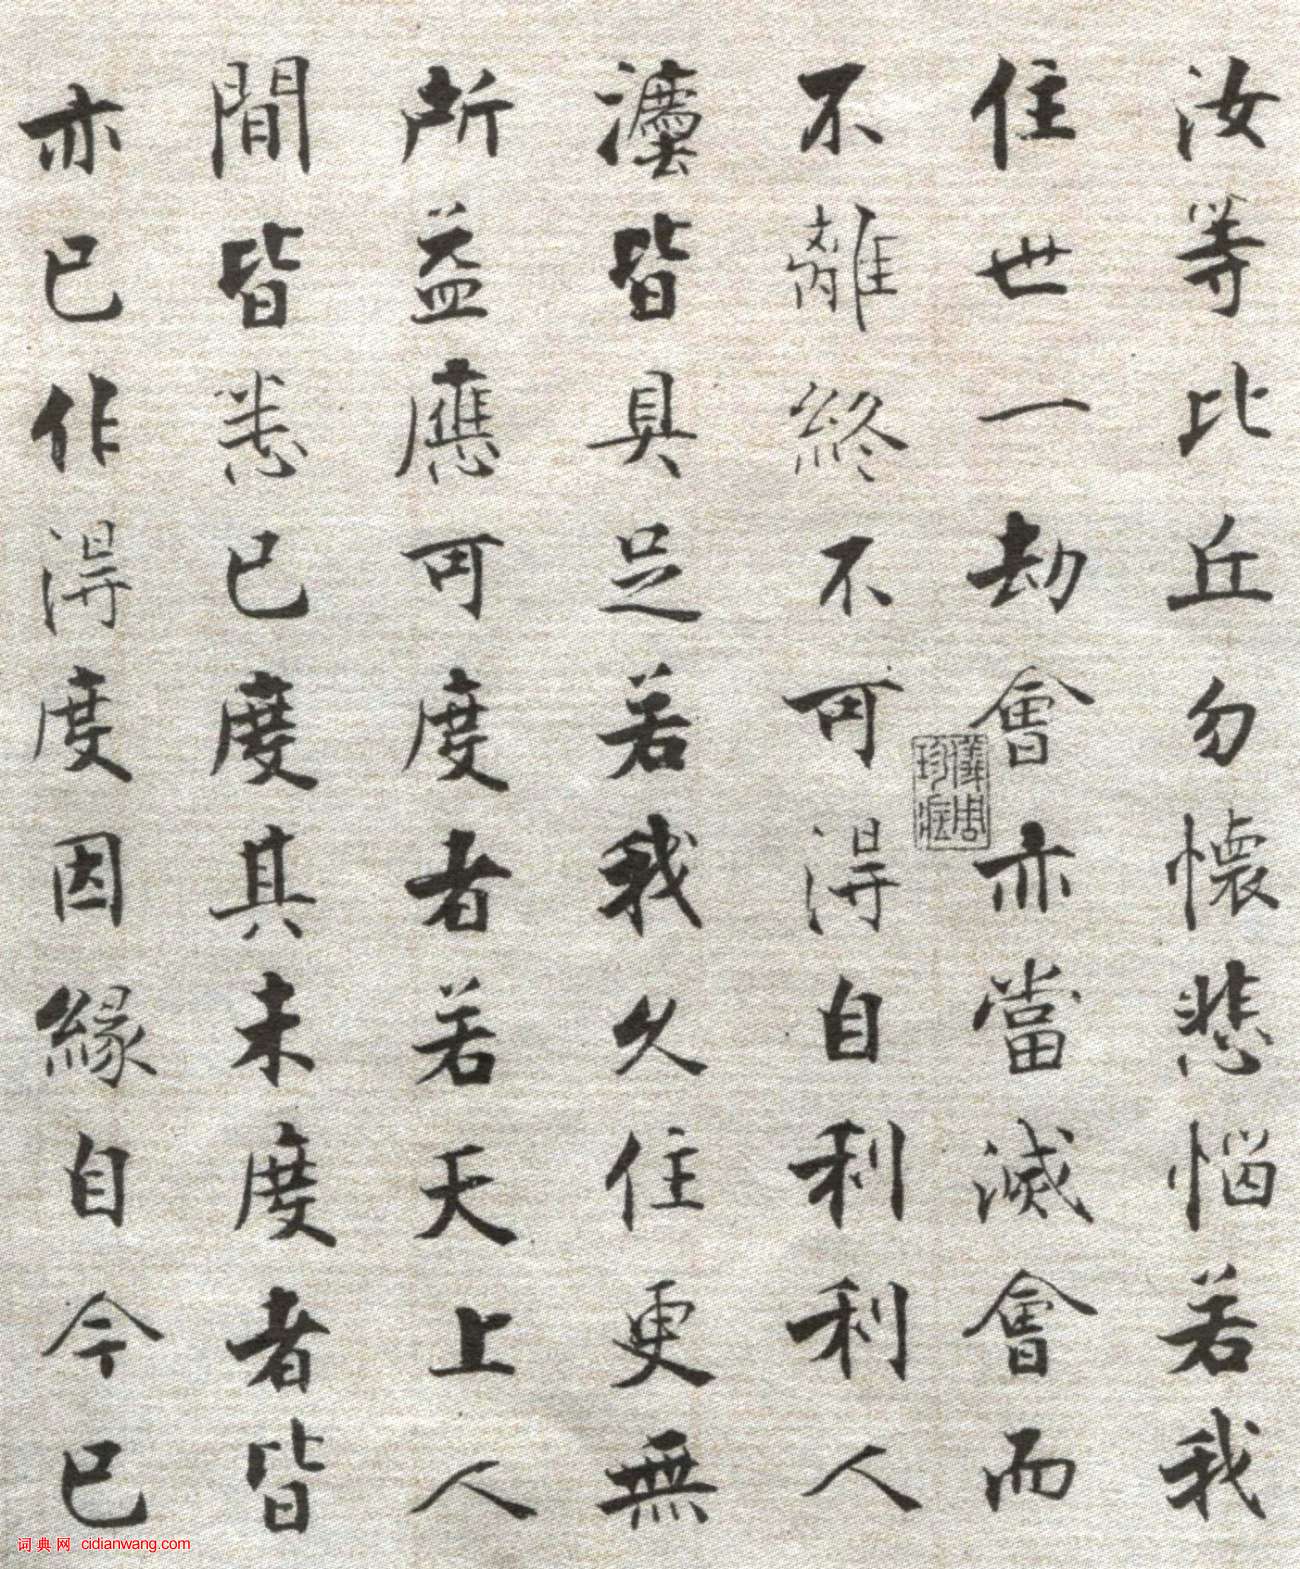 汝等比丘勿懷悲惱若我
住世一劫會亦當滅會而
不離終不可得自利利人
灋皆具足若我久住更無
所益應可度者若天上人
間皆悉已度其未度者皆
亦已作得度因緣自今已
词典网 cidianwang.com